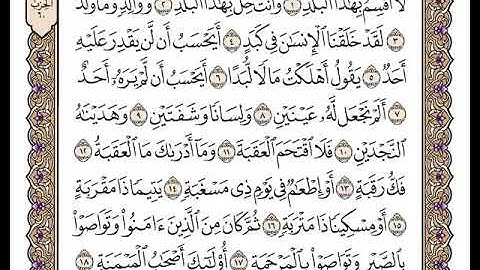 لَآ أُقْسِمُ بِهَٰذَا ٱلْبَلَدِ ١ وَأَنتَ حِلٌّۢ بِهَٰذَا ٱلْبَلَدِ ٢ وَوَالِدٍ وَمَا وَلَدَ
٣ لَقَدْ خَلَقْنَا ٱلْإِنسَٰنَ فِي كَبَدٍ ٤ أَيَحْسَبُ أَن لَّن يَقْدِرَ عَلَيْهِ
أَحَدٌ ٥ يَقُولُ أَهْلَكْتُ مَالًا لُّبَدًا ٦ أَيَحْسَبُ أَن لَّمْ يَرَهُۥٓ أَحَدٌ
٧ أَلَمْ نَجْعَل لَّهُۥ عَيْنَيْنِ ٨ وَلِسَانًا وَشَفَتَيْنِ ٩ وَهَدَيْنَٰهُ
ٱلنَّجْدَيْنِ ١٠ فَلَا ٱقْتَحَمَ ٱلْعَقَبَةَ ١١ وَمَآ أَدْرَىٰكَ مَا ٱلْعَقَبَةُ ١٢
فَكُّ رَقَبَةٍ ١٣ أَوْ إِطْعَٰمٌ فِي يَوْمٍ ذِي مَسْغَبَةٍ ١٤ يَتِيمًا ذَا مَقْرَبَةٍ
١٥ أَوْ مِسْكِينًا ذَا مَتْرَبَةٍ ١٦ ثُمَّ كَانَ مِنَ ٱلَّذِينَ ءَامَنُوا۟ وَتَوَاصَوْا۟
بِٱلصَّبْرِ وَتَوَاصَوْا۟ بِٱلْمَرْحَمَةِ ١٧ أُو۟لَٰٓئِكَ أَصْحَٰبُ ٱلْمَيْمَنَةِ ١٨
الحزب
٦٠